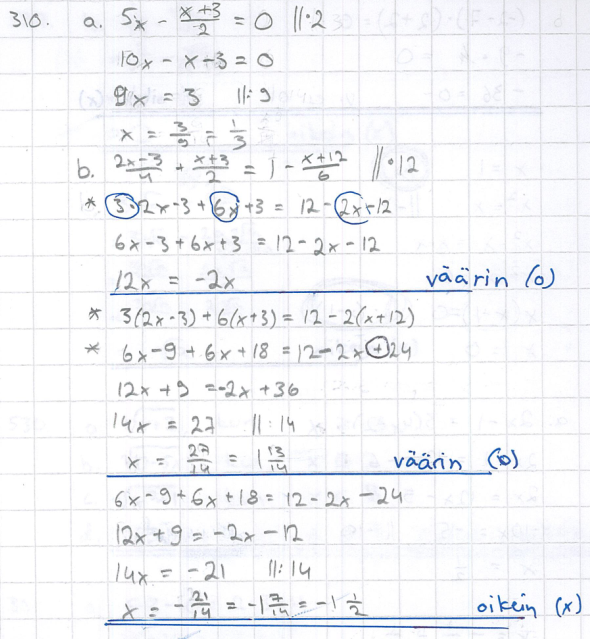 310. a. 5x - (x+3)/2 = 0 ||·2
10x - x-3 = 0
9x = 3 ||:9
x = 3/9 = 1/3
b. (2x-3)/4 + (x+3)/2 = 1 - (x+12)/6 ||·12
* 3·2x-3 + 6x+3 = 12 - 2x+12
6x-3+6x+3 = 12-2x-12
12x = -2x väärin (0)
* 3(2x-3)+6(x+3) = 12-2(x+12)
* 6x-9+6x+18 = 12-2x+24
12x+9 = -2x+36
14x = 27 ||:14
x = 27/14 = 1 13/14 väärin (0)
6x-9+6x+18 = 12-2x-24
12x+9 = -2x-12
14x = -21 ||:14
x = -21/14 = -1 7/14 = -1 1/2 oikein (x)